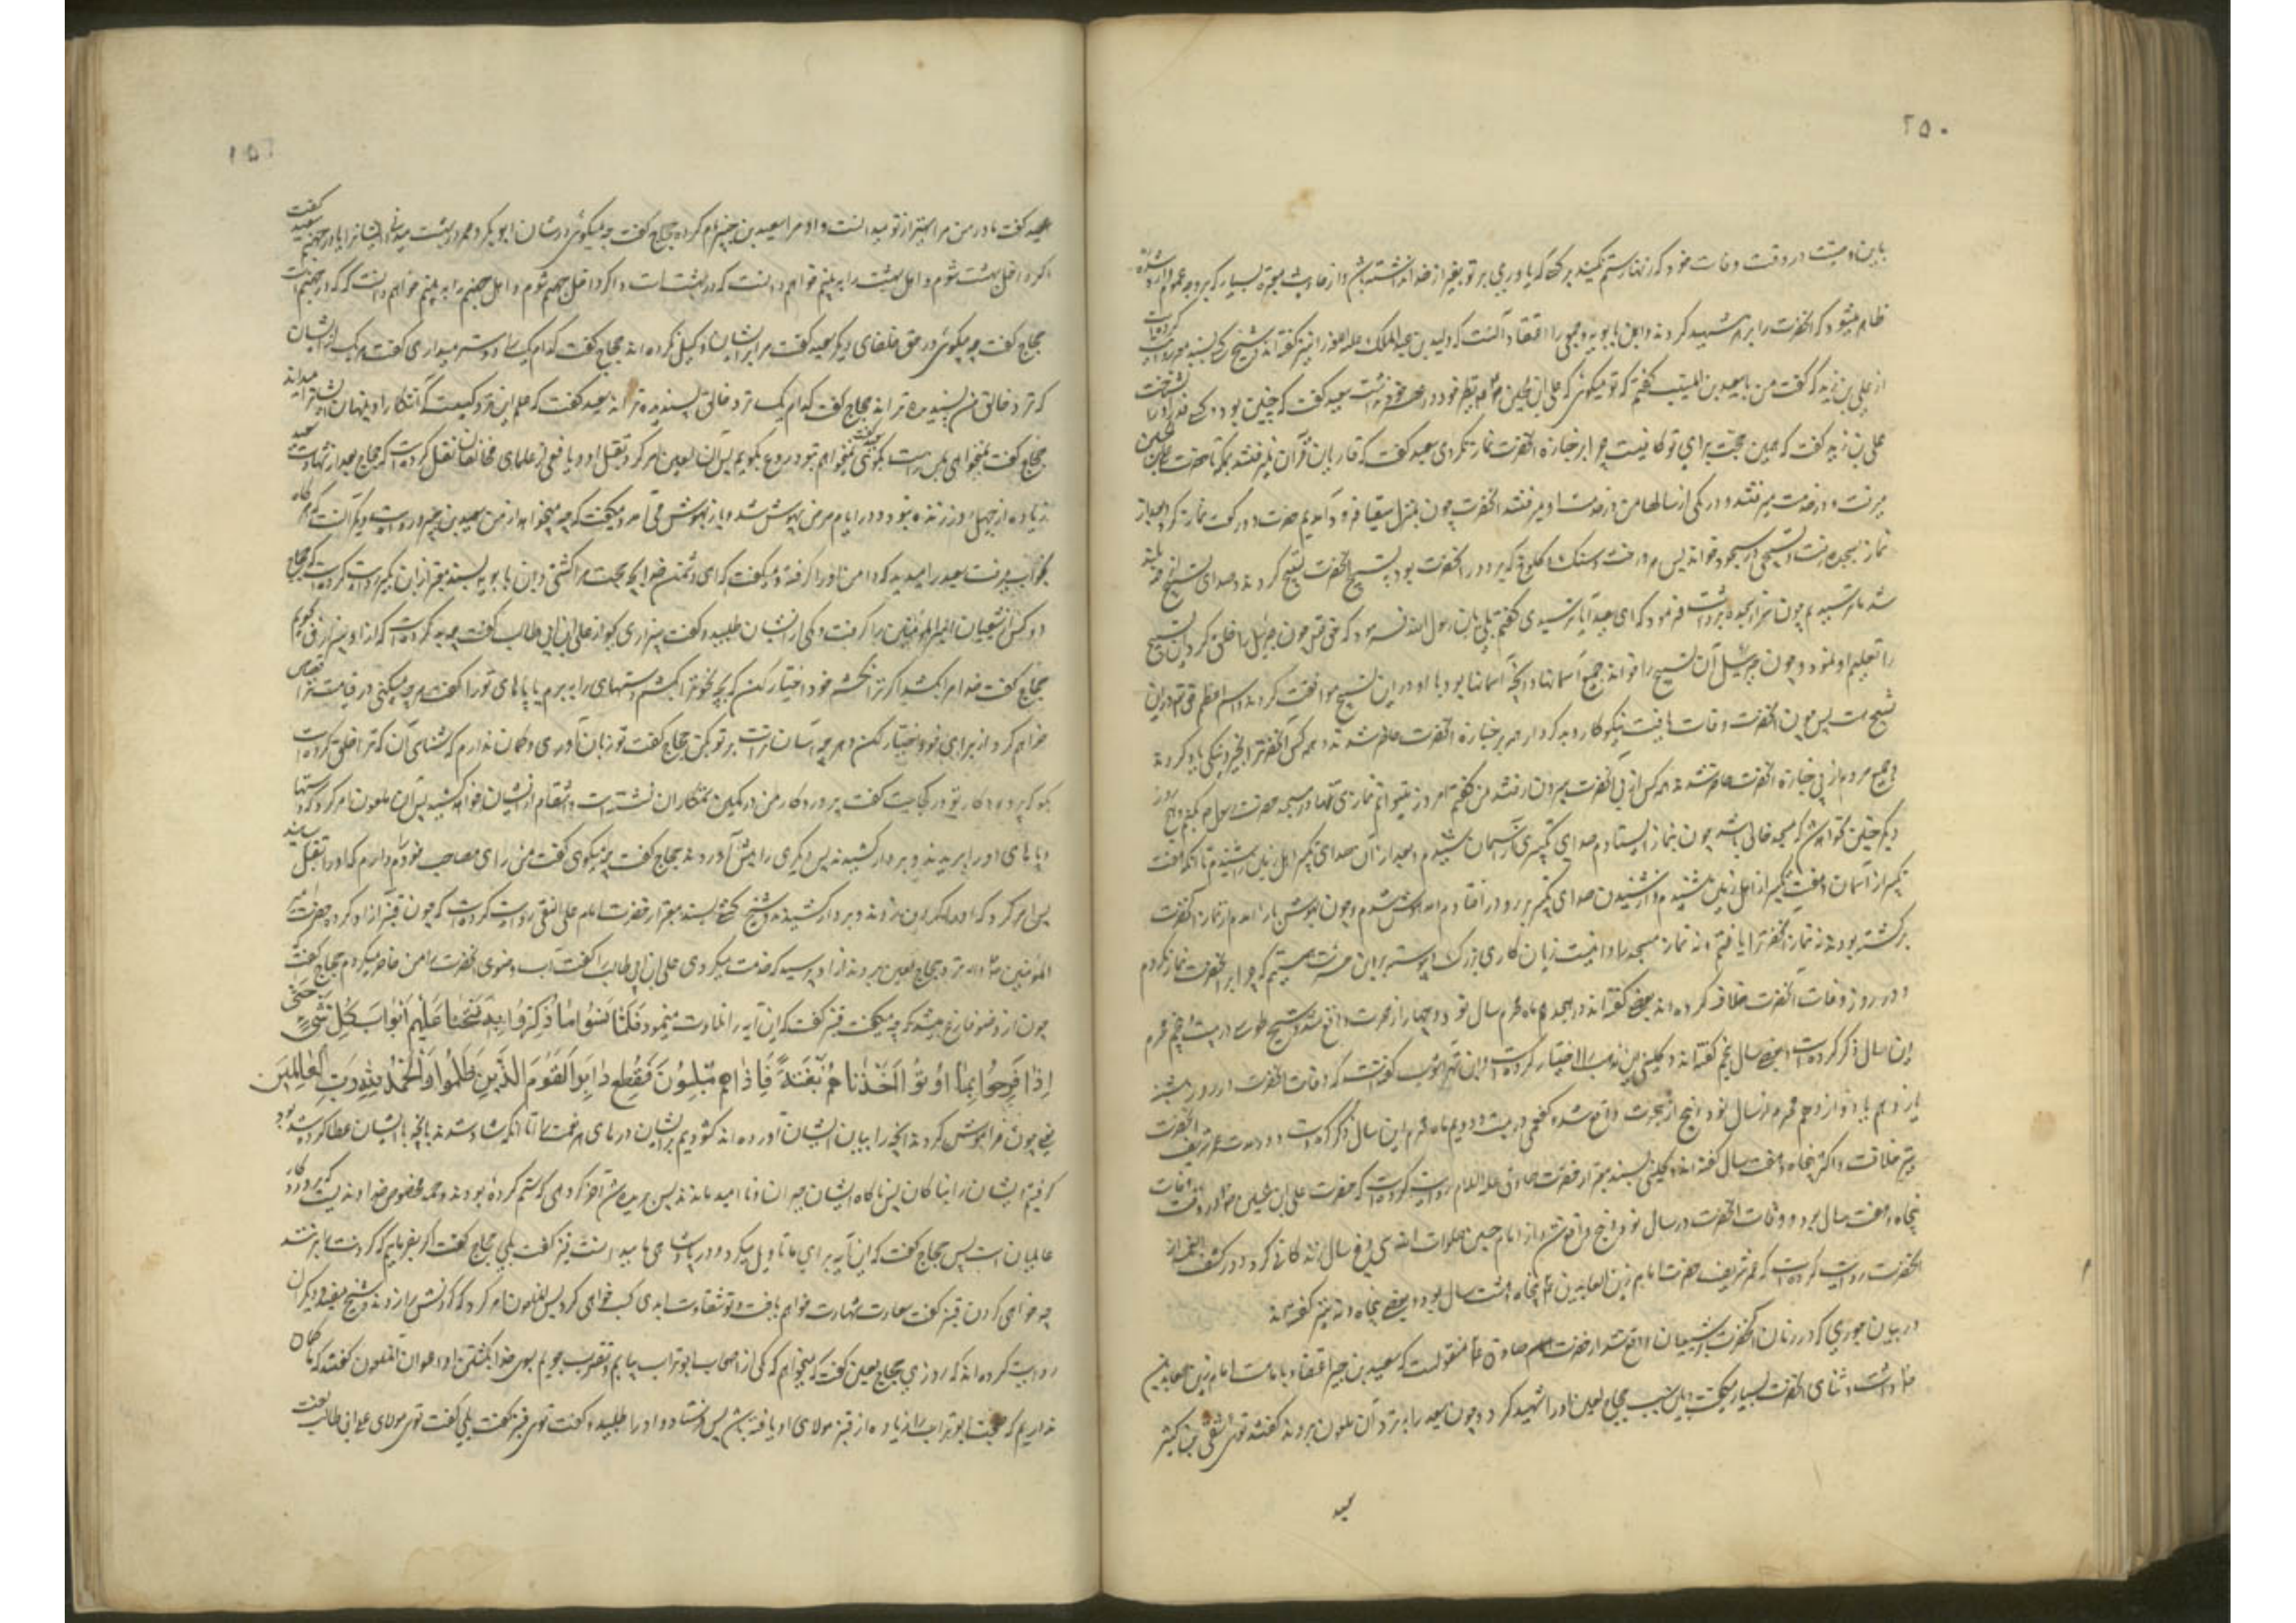 ۲۵۰
باین وصیت در وقت وفات خود که زنهار ستم مکنید بر کسی که یاوری بر تو بغیر از خدا نداشته باشد و از احادیث معتبره بسیار که بر وجه عموم وارد شده
ظاهر میشود که آنحضرت را بزهر شهید کردند و ابن بابویه و جمعی را اعتقاد آنست که ولید بن عبدالملک علیه اللعنه را نیز گفته‌اند و شیخ کشی بسند معتبر روایت کرده است
از علی بن زید که گفت من با سعید بن المسیب گفتم که تو میگوئی که علی بن الحسین نظیر خود در عصر خود نداشت سعید گفت که چنین بود و کسی قدر او را نشناخت
علی بن زید گفت که همین حجت برای تو کافیست چرا بر جنازه آنحضرت نماز نکردی سعید گفت که قاریان قرآن نمیرفتند بمکه تا حضرت علی بن الحسین
میرفت و در خدمت میرفتند و در یکی از سالها من در خدمت او میرفتم آنحضرت چون بمنزل سقیا فرود آمدیم حضرت دو رکعت نماز کرد و بعد از
نماز بسجده رفت و تسبیحی در سجود خواند پس هر درخت و سنگ و کلوخ که بر دور آنحضرت بود به تسبیح آنحضرت تسبیح کردند و صدای تسبیح از همه بلند
شد ما ترسیدیم چون سر از سجده برداشت فرمود که ای سعید آیا ترسیدی گفتم بلی یابن رسول الله فرمود که حق تعالی چون جبرئیل را خلق کرد این تسبیح
را تعلیم او نمود و چون جبرئیل آن تسبیح را خواند جمیع آسمانها و آنچه در آسمانها بود با او در این تسبیح موافقت کردند و اسم اعظم حق تعالی در این
تسبیح است پس چون آنحضرت وفات یافت نیکوکار و بدکردار همه بر جنازه آنحضرت حاضر شدند و همه کس آنحضرت را بخیر و نیکی یاد کردند
و جمیع مردم از پی جنازه آنحضرت حاضر شدند همه کس از پی آنحضرت بیرون رفتند من گفتم امروز میتوانم نمازی تنها در مسجد حضرت رسول بکنم و هیچ روز
دیگر چنین نخواهد شد که مسجد خالی باشد چون بنماز ایستادم صدای تکبیری از آسمان شنیدم و بعد از آن صدای تکبیر اهل زمین را شنیدم تا آنکه هفت
تکبیر از آسمان و هفت تکبیر از اهل زمین شنیدم و از شنیدن صدای تکبیر بر رو در افتادم و مدهوش شدم و چون بهوش باز آمدم از نماز آنحضرت
برگشته بودند نه نماز آنحضرت را یافتم و نه نماز مسجد را دانست زیان کاری بزرگ و پیوسته بر این حسرت هستم که چرا بر آنحضرت نماز نکردم
و در روز وفات آنحضرت خلاف کرده‌اند بعضی گفته‌اند در هجدهم ماه محرم سال نود و چهار از هجرت واقع شد و شیخ طوسی در بیست و پنجم محرم
این سال ذکر کرده است و بعضی سال پنجم گفته‌اند و کلینی این را اختیار کرده است و ابن شهر آشوب گفته است که وفات آنحضرت در روز شنبه
یازدهم یا دوازدهم محرم از سال نود و پنج از هجرت واقع شد و کفعمی در بیست و دویم ماه محرم این سال ذکر کرده است و در مدت عمر شریف آنحضرت
نیز خلافست و اکثر پنجاه و هفت سال گفته‌اند و کلینی بسند معتبر از حضرت صادق علیه السلام روایت کرده است که حضرت علی بن الحسین در وقت وفات
پنجاه و هفت سال بود و وفات آنحضرت در سال نود و پنج واقع شد و از امام حسین صلوات الله سی و پنج سال زندگانی کرد و در کشف الغمه از
آنحضرت روایت کرده است که عمر شریف حضرت امام زین العابدین پنجاه و هشت سال بود و بعضی پنجاه و نه نیز گفته‌اند
در بیان جوری که در زمان آنحضرت بر شیعیان واقع شد از حضرت امام صادق منقولست که سعید بن جبیر اعتقاد بامامت امام زین العابدین
داشت و ثنای آنحضرت بسیار میگفت و باین سبب حجاج لعین او را شهید کرد و چون سعید را به نزد آن ملعون بردند گفت توئی شقی بن کسیر
سعید
۲۵۱
سعید گفت مادر من مرا بهتر از تو میدانست و او مرا سعید بن جبیر نام کرده حجاج گفت چه میگوئی در شان ابوبکر و عمر در بهشت میدانی ایشان را یا در جهنم سعید گفت
اگر داخل بهشت شوم و اهل بهشت را به بینم خواهم دانست که در بهشت است و اگر داخل جهنم شوم و اهل جهنم را به بینم خواهم دانست که که در جهنم است
حجاج گفت چه میگوئی در حق خلفای دیگر سعید گفت مرا بر ایشان وکیل نکرده‌اند حجاج گفت که کدام یک را دوستر میداری گفت هر یک از ایشان
که نزد خالق من پسندیده‌تر اند حجاج گفت کدام یک نزد خالق پسندیده‌تر اند سعید گفت که علم این نزد کسیست که آشکار و پنهان ایشان را میداند
حجاج گفت نمیخواهی بمن راست بگوئی گفت نمیخواهم بتو دروغ بگویم پس آن لعین امر کرد بقتل او و یافعی از علمای مخالفان نقل کرده است که حجاج بعد از شهادت سعید
زیاده از چهل روز زنده نبود و در ایام مرض بیهوش شد و باز بهوش می‌آمد و میگفت که چه میخواهد از من سعید بن جبیر و روایت دیگر آنست که هر گاه
بخواب میرفت سعید را میدید که دامن او را گرفته و میگفت که ای دشمن خدا بچه جهت مرا کشتی و ابن بابویه بسند معتبر از ابن بکیر روایت کرده است که حجاج
دو کس از شیعیان امیر المؤمنین را گرفت و یکی از ایشان طلبید و گفت بیزاری بجو از علی ابن ابی طالب گفت چه بد کرده است که از او بیزاری جویم
حجاج گفت خدا مرا بکشد اگر ترا نکشم خود اختیار کن که بچه نحو ترا بکشم دستهای را ببرم یا پاهای تو را گفت هر چه میکنی در قیامت ترا قصاص
خواهم کرد از برای خود اختیار کن و هر چه آسان تر است بر تو بکن حجاج گفت تو زبان آوری و گمان ندارم که شناسای آن که ترا خلق کرده است
بگو که پروردگار تو در کجاست گفت پروردگار من در کمین ستمکاران نشسته است و انتقام از ایشان خواهد کشید پس آن ملعون امر کرد که دستها
و پاهای او را بریدند و بر دار کشیدند پس دیگری را پیش آوردند حجاج گفت چه میگوئی گفت من رای مصاحب خود دارم که او را بقتل رسانیدند
پس امر کرد که او را گردن زدند و بر دار کشیدند و شیخ کشی بسند معتبر از حضرت امام علی النقی روایت کرده است که چون قنبر آزاد کرده حضرت امیر
المؤمنین را نزد حجاج لعین بردند از او پرسید که چه خدمت میکردی علی ابن ابی طالب را گفت آب وضوی آنحضرت را من حاضر میکردم حجاج گفت
چون از وضو فارغ میشد که چه میگفت قنبر گفت که این آیه را تلاوت مینمود فَلَمَّا نَسُوا مَا ذُكِّرُوا بِهِ فَتَحْنَا عَلَيْهِمْ أَبْوَابَ كُلِّ شَيْءٍ حَتَّى
إِذَا فَرِحُوا بِمَا أُوتُوا أَخَذْنَاهُمْ بَغْتَةً فَإِذَا هُمْ مُبْلِسُونَ فَقُطِعَ دَابِرُ الْقَوْمِ الَّذِينَ ظَلَمُوا وَالْحَمْدُ لِلَّهِ رَبِّ الْعَالَمِينَ
یعنی چون فراموش کردند آنچه را بیاد ایشان آورده‌اند گشودیم بر ایشان درهای هر نعمت را تا آنکه شاد شدند بآنچه بایشان عطا کرده شده بود
گرفتیم ایشان را بناگاه پس ناگاه ایشان حیران و ناامید ماندند پس بریده شد آخر گروهی که ستم کرده بودند و حمد مخصوص خداوندیست که پروردگار
عالمیان است پس حجاج گفت که این آیه برای ما تاویل میکرد و در باب ما میدانست قنبر گفت بلی حجاج گفت اگر بفرمایم که گردنت را بزنند
چه خواهی کردن قنبر گفت سعادت شهادت خواهم یافت و تو شقاوت ابدی کسب خواهی کرد پس ملعون امر کرد که گردنش را زدند و شیخ مفید و دیگران
روایت کرده‌اند که روزی حجاج لعین گفت که میخواهم که یکی از اصحاب ابوتراب بیابم و تقرب جویم بسوی خدا بکشتن او اعوان آن ملعون گفتند که ما گمان
نداریم که صحبت ابوتراب را زیاده از قنبر مولای او یافته باشد پس فرستاد و او را طلبید و گفت توئی قنبر گفت بلی گفت توئی مولای علی ابی طالب گفت